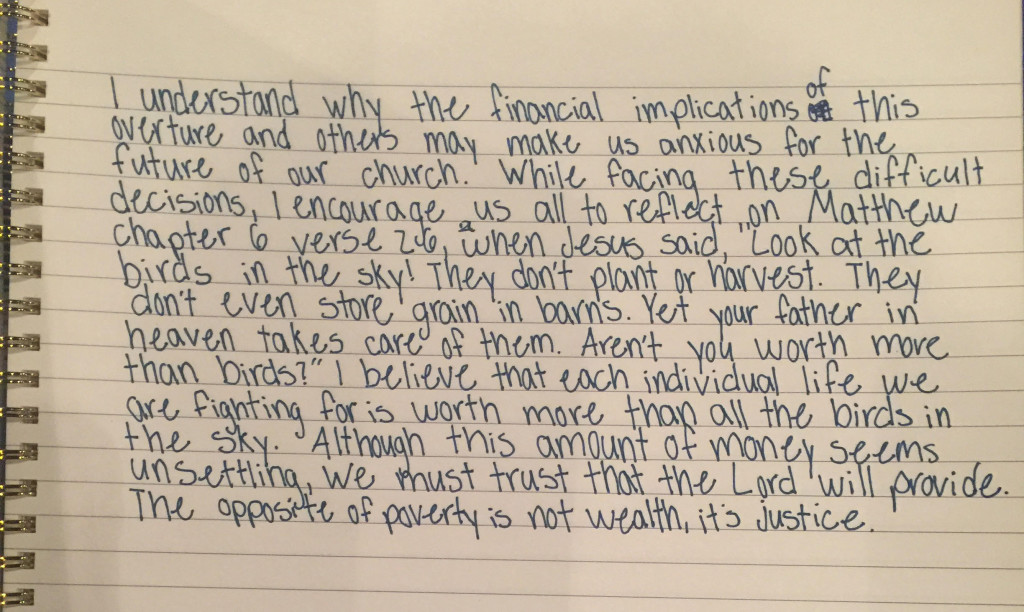 I understand why the financial implications of this
overture and others may make us anxious for the
future of our church. While facing these difficult
decisions, I encourage us all to reflect on Matthew
chapter 6 verse 26, when Jesus said, "Look at the
birds in the sky! They don't plant or harvest. They
don't even store grain in barns. Yet your father in
heaven takes care of them. Aren't you worth more
than birds?" I believe that each individual life we
are fighting for is worth more than all the birds in
the sky. Although this amount of money seems
unsettling, we must trust that the Lord will provide.
The opposite of poverty is not wealth, it's justice.